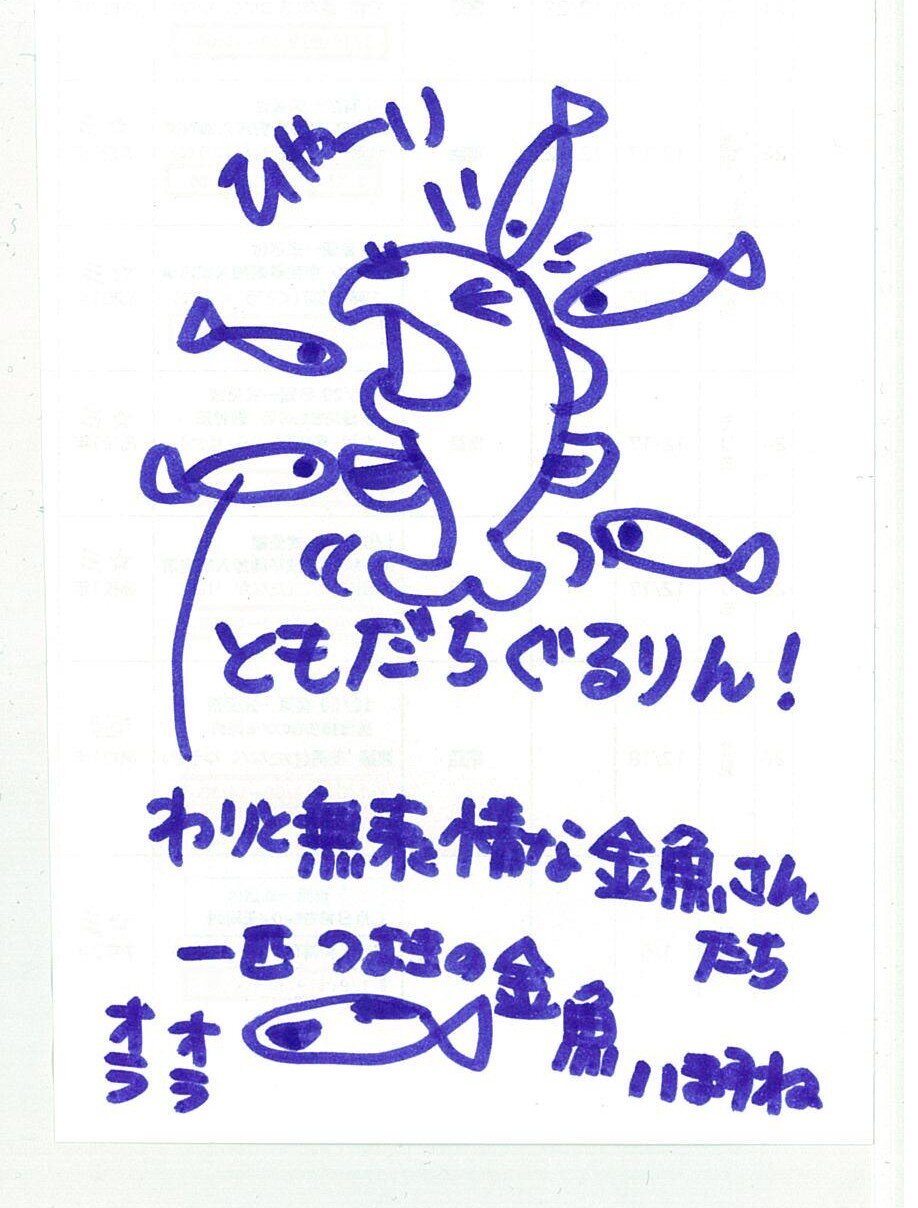 ひゃーい
ともだちぐるりん!
わりと無表情な金魚さん
だち
一匹つよきの金魚
いますね
オラ
オラ